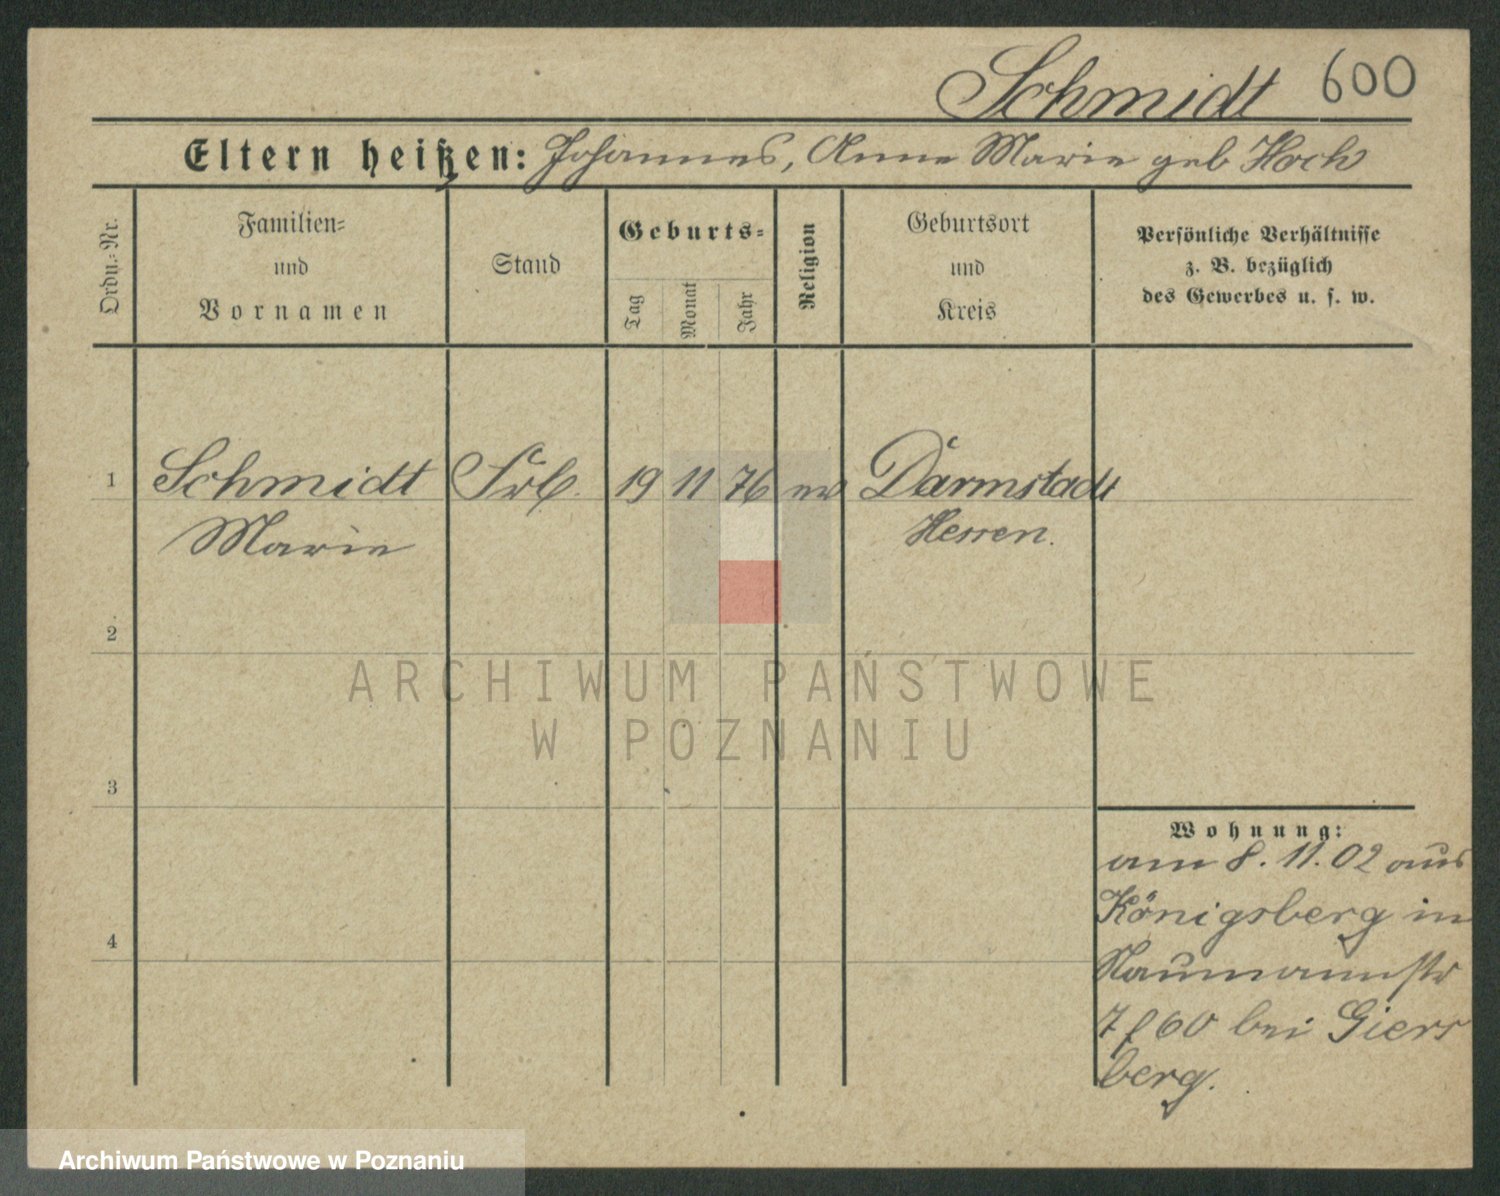 Schmidt 600
Eltern heißen: Johannes, Anna Marie geb Hoch
Ordn.-Nr.
Familien- und Vornamen
Stand
Geburts-
Tag
Monat
Jahr
Religion
Geburtsort und Kreis
Persönliche Verhältnisse
z. B. bezüglich
des Gewerbes u. s. w.
1 Schmidt Frl. 19 11 76 ev Darmstadt
Marie Hessen.
2
ARCHIWUM PAŃSTWOWE
W POZNANIU
3
Wohnung:
am 8. 11. 02 aus
Königsberg in
4
Naumannstr
7 f 60 bei Giers
berg.
Archiwum Państwowe w Poznaniu